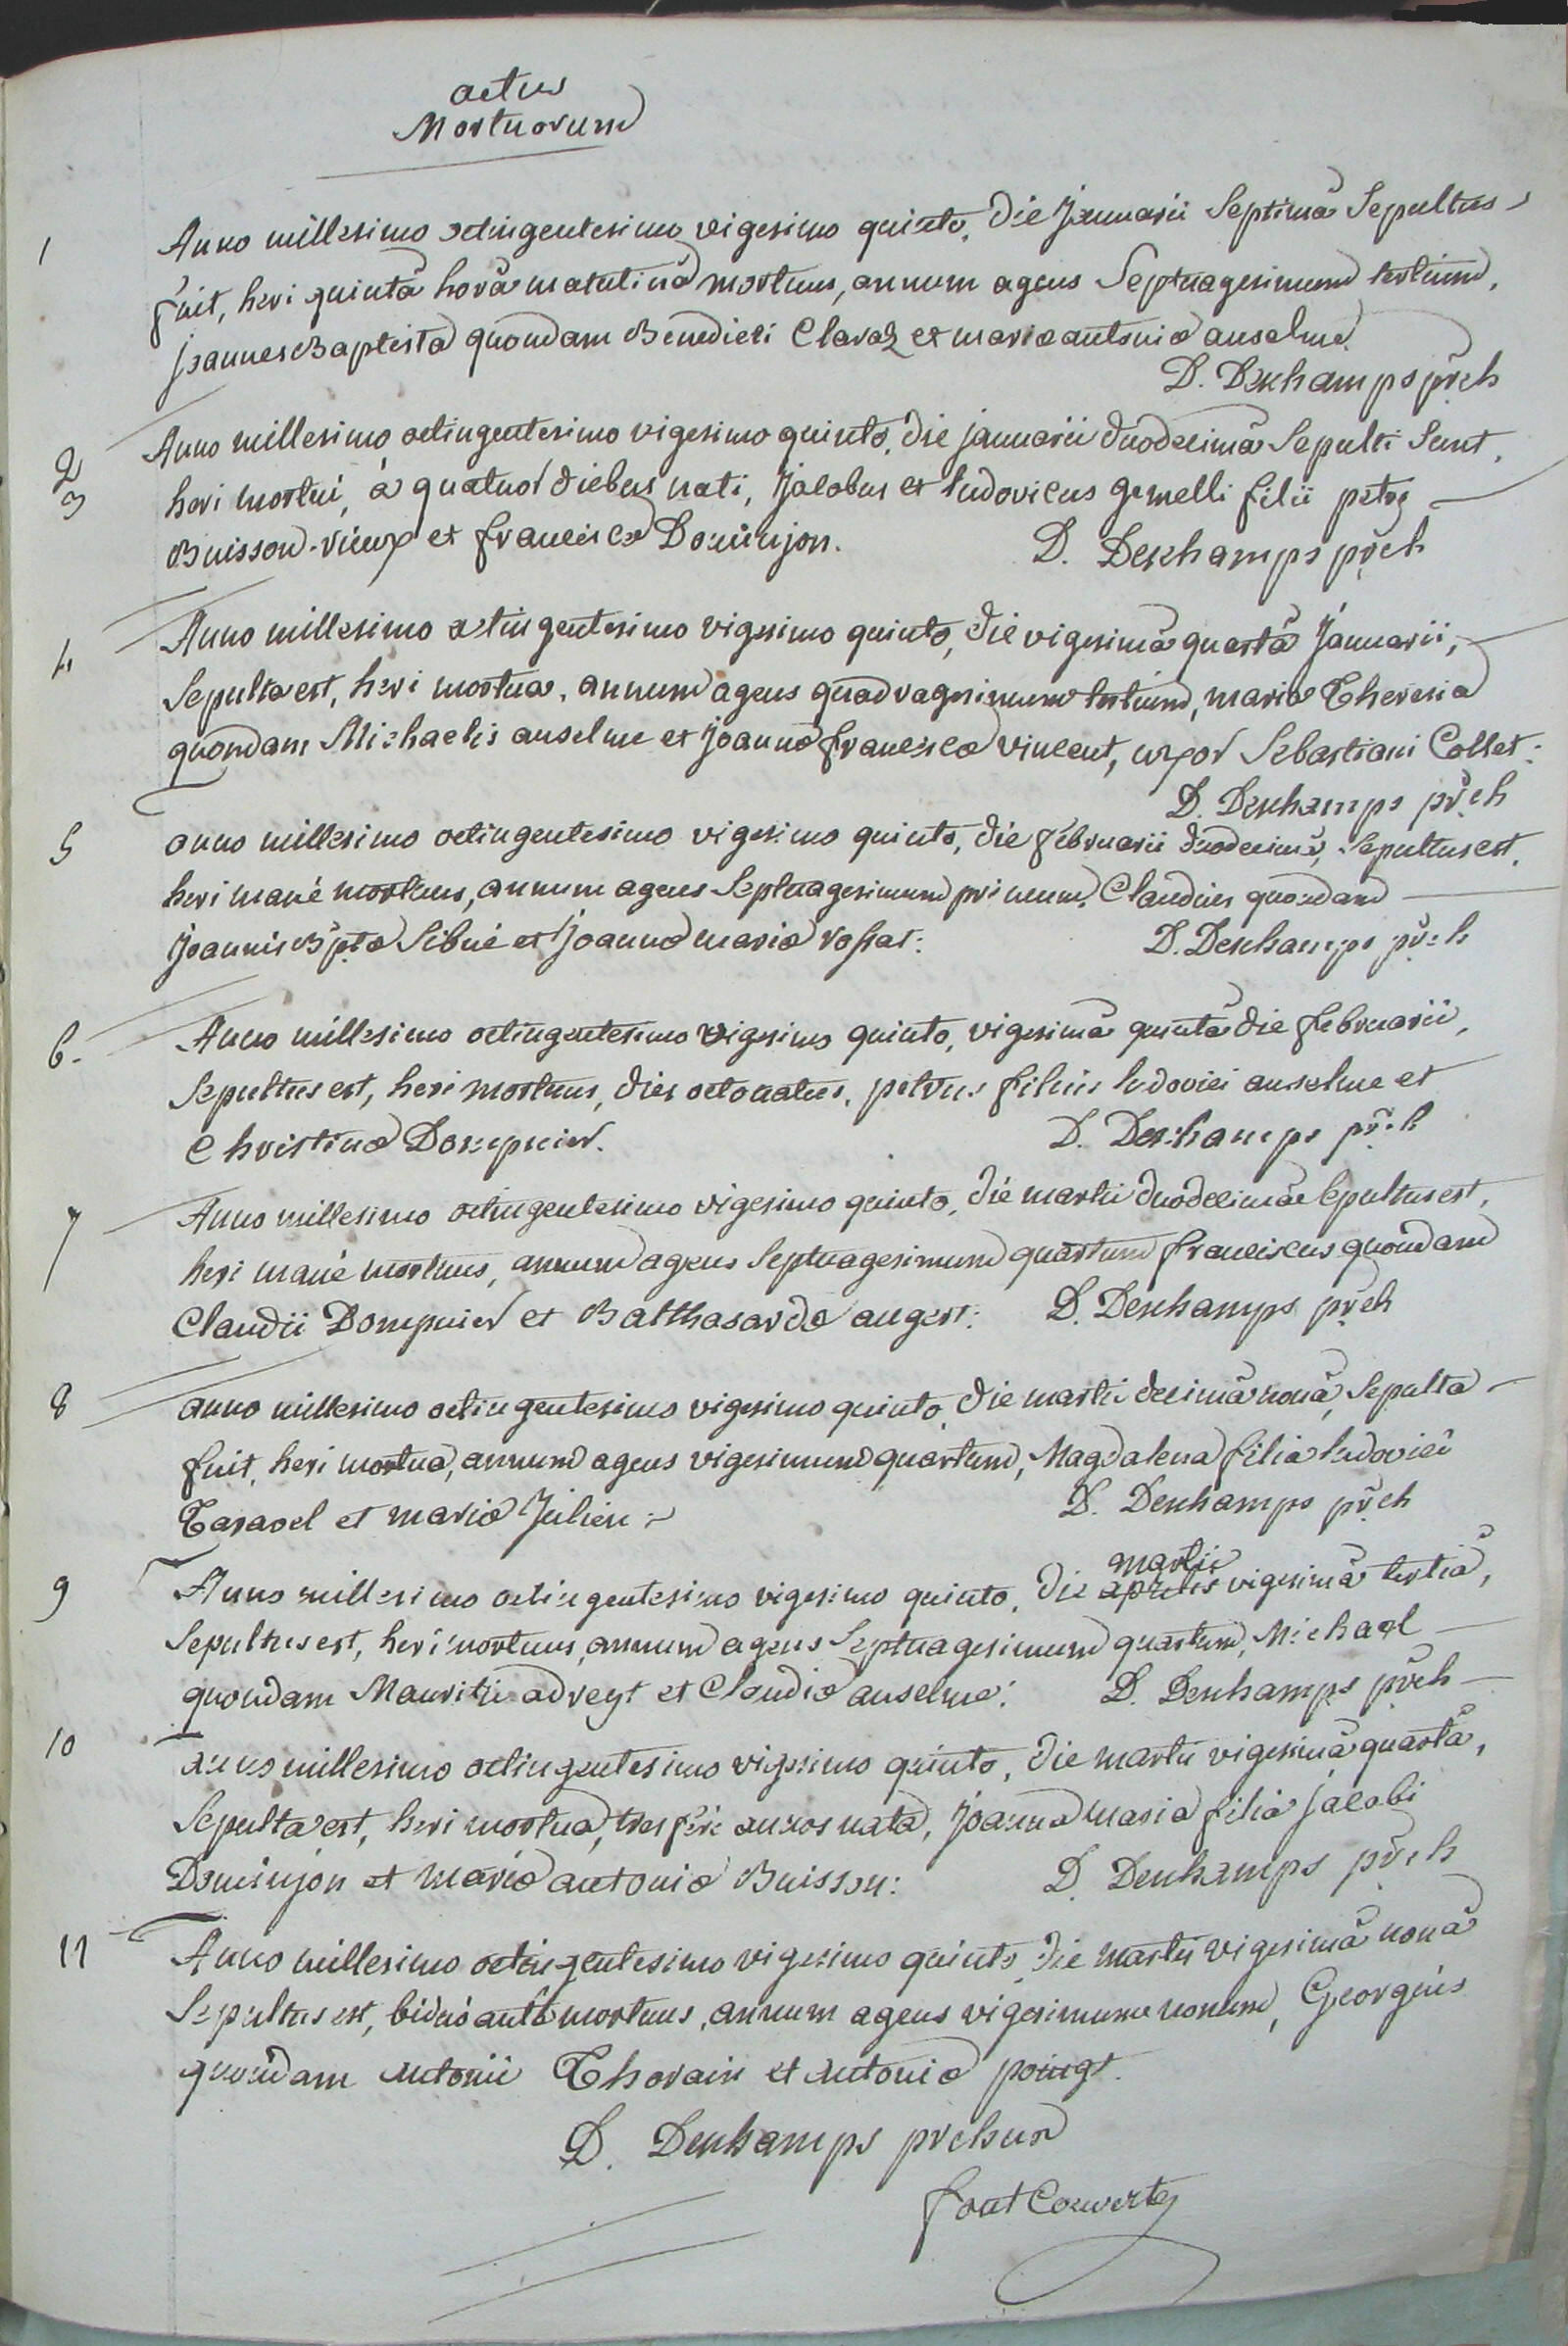 actus
Mortuorum
1 Anno millesimo octingentesimo vigesimo quinto, die Januarii Septimâ Sepultus
fuit, heri quintâ horâ matutinâ mortuus, annum agens Septuagesimum tertium,
Joannes Baptista quondam Benedicti Claraz et mariæ antoniæ anselme.
D. Deschamps pr̃ch
2 Anno millesimo octingentesimo vigesimo quinto, die januarii duodecimâ Sepulti Sunt,
3 heri mortui, à quatuor diebus nati, Jacobus et ludovicus gemelli filii petri
Buisson-vieux et franciscæ Dominjon. D. Deschamps pr̃ch
4 Anno millesimo octingentesimo vigesimo quinto, die vigesimâ quartâ Januarii,
Sepulta est, heri mortua, annum agens quadragesimum tertium, maria Theresia
quondam Michaelis anselme et Joannæ franciscæ vincent, uxor Sebastiani Collet:
D. Deschamps pr̃ch
5 anno millesimo octingentesimo vigesimo quinto, die februarii duodecimâ, Sepultus est,
heri manè mortuus, annum agens Septuagesimum primum, Claudius quondam
Joannis Bptæ Sibué et Joannæ mariæ rossat: D. Deschamps pr̃ch
6. Anno millesimo octingentesimo vigesimo quinto, vigesimâ quintâ die februarii,
Sepultus est, heri mortuus, dies octo natus, petrus filius ludovici anselme et
Christinæ Dompnier. D. Deschamps pr̃ch
7 Anno millesimo octingentesimo vigesimo quinto, die martii duodecimâ Sepultus est,
heri manè mortuus, annum agens Septuagesimum quartum franciscus quondam
Claudii Dompnier et Balthasardæ augert: D. Deschamps pr̃ch
8 anno millesimo octingentesimo vigesimo quinto, die martii decimâ nonâ, Sepulta
fuit, heri mortua, annum agens vigesimum quartum, Magdalena filia ludovici
Taravel et mariæ Julien: D. Deschamps pr̃ch
martii
9 Anno millesimo octingentesimo vigesimo quinto, die aprilis vigesimâ tertiâ,
Sepultus est, heri mortuus, annum agens Septuagesimum quartum, Michael
quondam Mauritii adreyt et Claudiæ anselme: D. Deschamps pr̃ch
10 anno millesimo octingentesimo vigesimo quinto, die martii vigesimâ quartâ,
Sepulta est, heri mortua, tres ferè annos nata, Joanna maria filia Jacobi
Dominjon et mariæ antoniæ Buisson: D. Deschamps pr̃ch
11 Anno millesimo octingentesimo vigesimo quinto, die martii vigesimâ nonâ
Sepultus est, biduò antè mortuus, annum agens vigesimum nonum, Georgius
quondam antonii Thorain et antoniæ poingt.
D. Deschamps
font Couverte